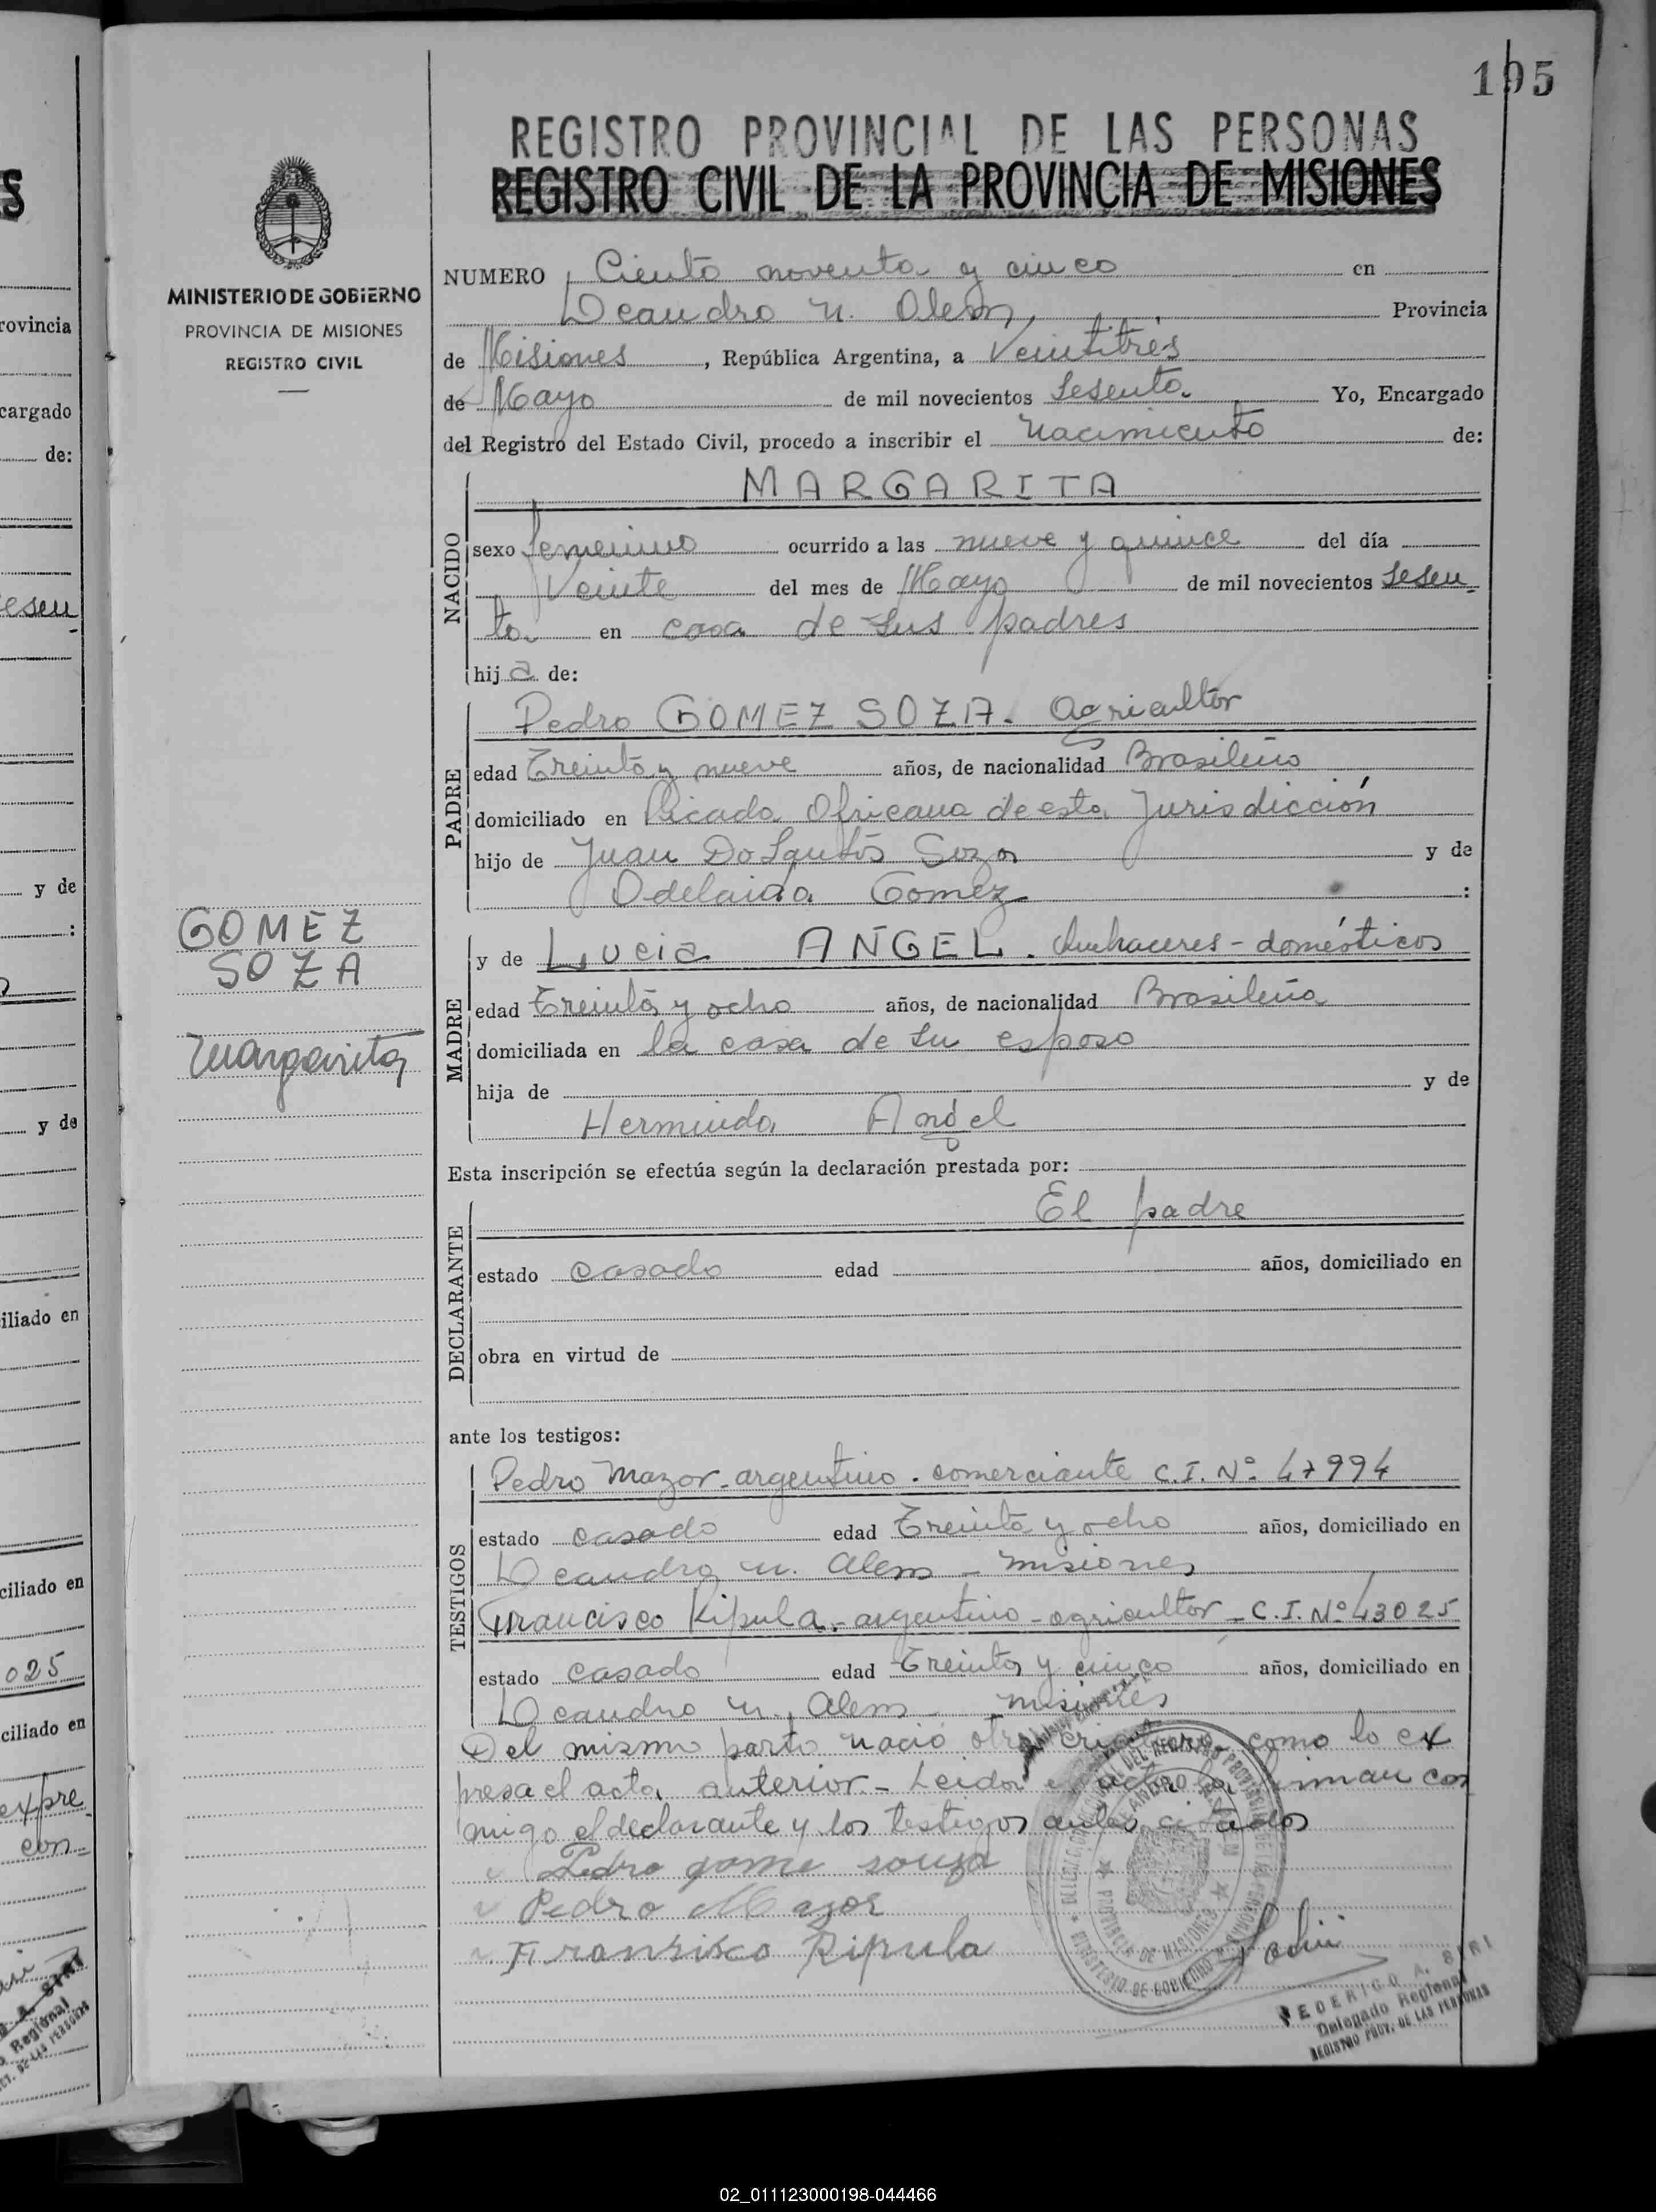 195
REGISTRO PROVINCIAL DE LAS PERSONAS
REGISTRO CIVIL DE LA PROVINCIA DE MISIONES
MINISTERIO DE GOBIERNO
PROVINCIA DE MISIONES
REGISTRO CIVIL
NUMERO Ciento noventa y cinco en
Leandro N. Alem, Provincia
de Misiones, República Argentina, a Veintitrés
de Mayo de mil novecientos Sesenta. Yo, Encargado
del Registro del Estado Civil, procedo a inscribir el Nacimiento de:
NACIDO
MARGARITA
sexo femenino ocurrido a las nueve y quince del día
Veinte del mes de Mayo de mil novecientos Sesen
ta en casa de sus padres
hija de:
PADRE
Pedro GOMEZ SOZA. Agricultor
edad Treinta y nueve años, de nacionalidad Brasileño
domiciliado en Picada Africana de esta Jurisdicción
hijo de Juan Do Santos Soza y de
Adelaida Gomez :
GOMEZ
SOZA
Margarita
MADRE
y de Lucia ANGEL. Quehaceres - domésticos
edad Treinta y ocho años, de nacionalidad Brasileña
domiciliada en la casa de su esposo
hija de y de
Herminda Angel
Esta inscripción se efectúa según la declaración prestada por:
DECLARANTE
El padre
estado casado edad años, domiciliado en
obra en virtud de
ante los testigos:
TESTIGOS
Pedro Mazor - argentino. comerciante C.I. Nº 47994
estado casado edad Treinta y ocho años, domiciliado en
Leandro N. Alem - Misiones
Francisco Kipula - argentino - agricultor - C.I. Nº 43025
estado casado edad Treinta y cinco años, domiciliado en
Leandro N. Alem - Misiones
Del mismo parto nació otra criatura como lo ex
presa el acta anterior. - Leida el acta la firman con
migo el declarante y los testigos antes citados
Pedro gome souza
Pedro Mazor
Fransisco Ripula
FEDERICO A. SIRI
Delegado Regional
REGISTRO PROV. DE LAS PERSONAS
02_011123000198-044466